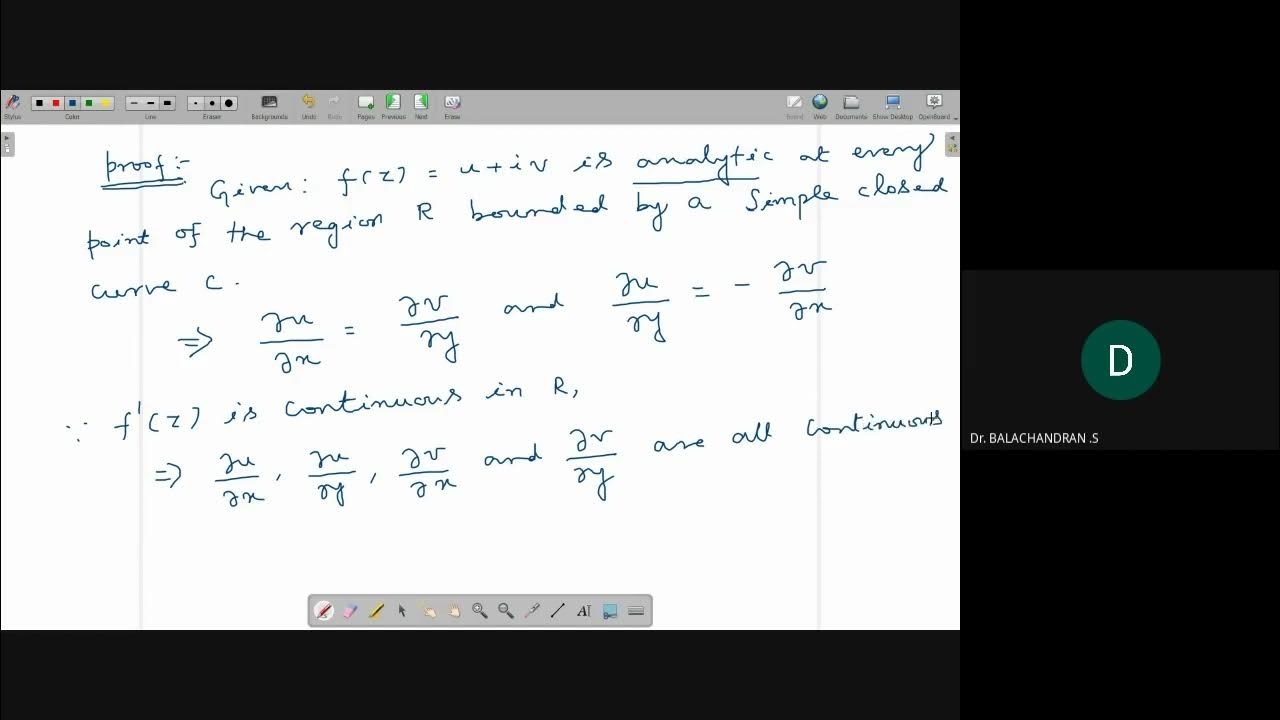 Stylus Color Line Eraser Backgrounds Undo Redo Pages Previous Next Erase Board Web Documents Show Desktop OpenBoard
proof:-
Given: f(z) = u+iv is analytic at every
point of the region R bounded by a simple closed
curve C.
⇒ ∂u/∂x = ∂v/∂y and ∂u/∂y = - ∂v/∂x
∵ f'(z) is continuous in R,
⇒ ∂u/∂x, ∂u/∂y, ∂v/∂x and ∂v/∂y are all continuous
D
Dr. BALACHANDRAN .S